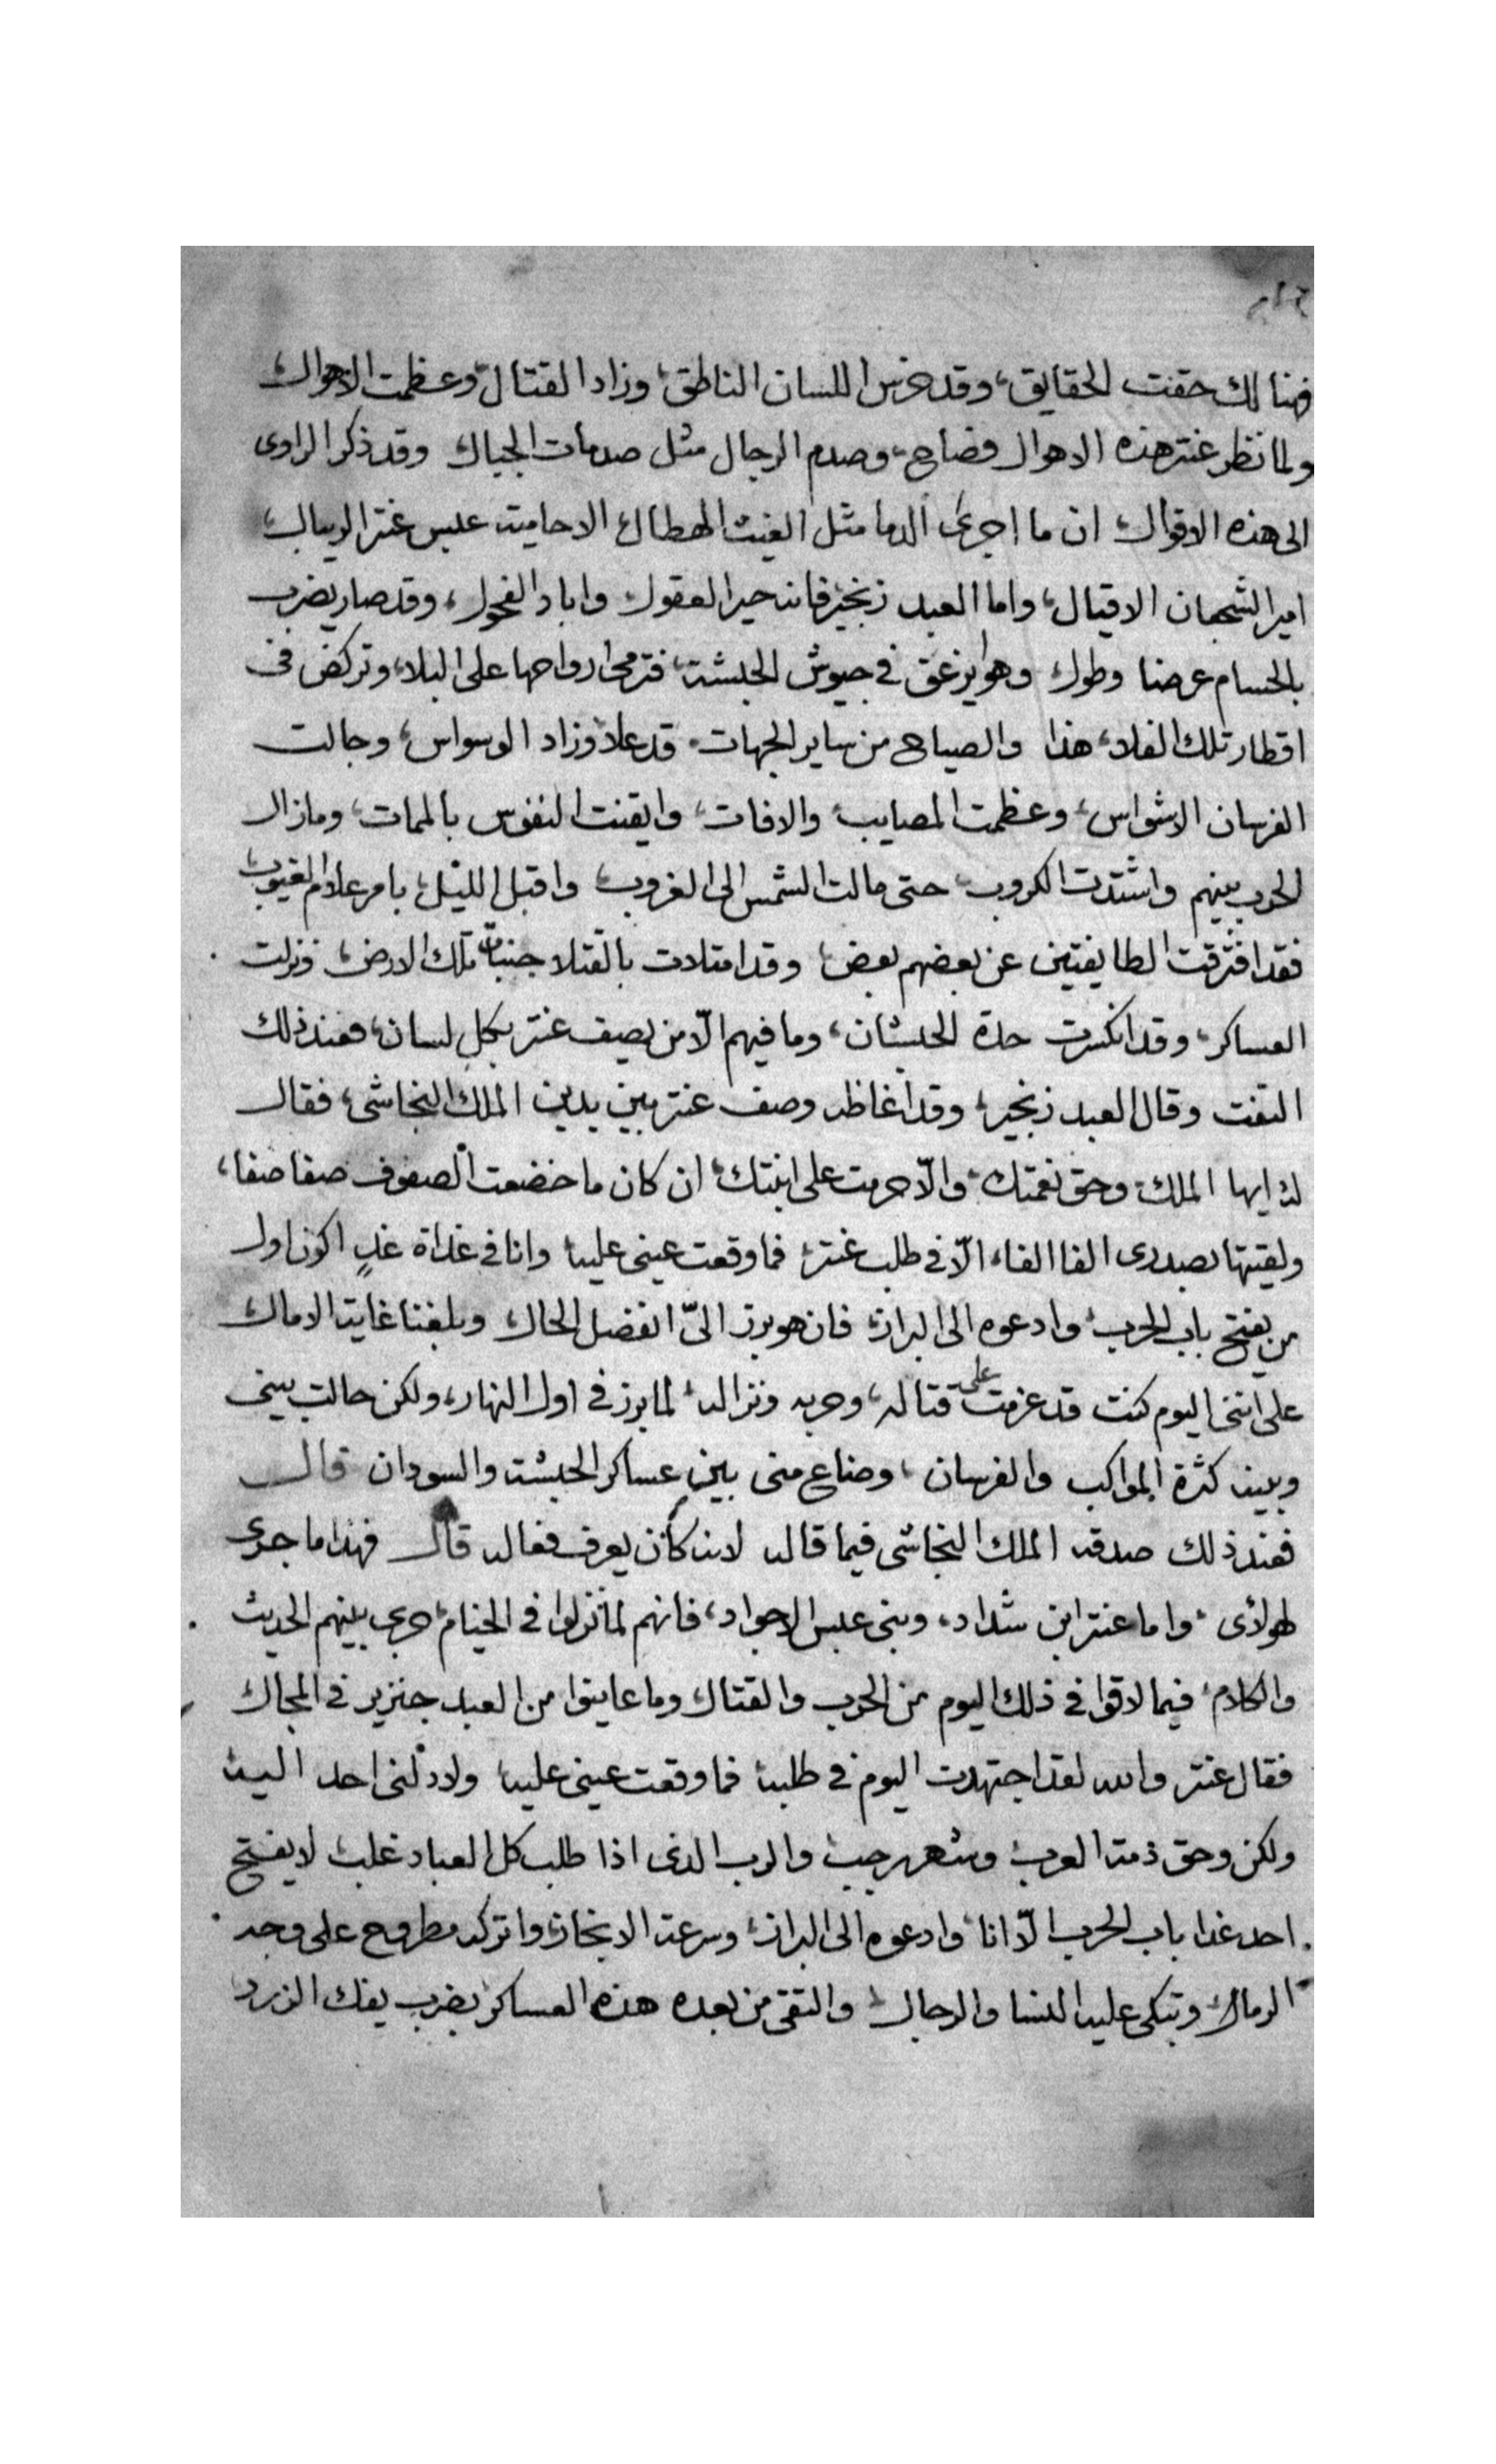 فهنالك حقت الحقايق، وقد خرس اللسان الناطق، وزاد القتال وعظمت الاهوال
ولما نظر عنتر هذه الاهوال فصاح، وصدم الرجال مثل صدمات الجبال وقد ذكر الراوى
الى هذه الاقوال ان ما اجرى الدما مثل الغيث الهطال الا حاميت عبس عنتر الريبال
امير الشجعان الاقيال، واما العبد زنجير فانه حير العقول واباد الفحول، وقد صار يضرب
بالحسام عرضا وطول وهو يزعق في جيوش الحبشة، فترمى ارواحها على البلا، وتركض فى
اقطار تلك الفلا، هذا والصياح من ساير الجهات قد علا وزاد الوسواس، وجالت
الفرسان الاشواس، وعظمت المصايب والافات، وايقنت النفوس بالممات، ومازال
الحرب بينهم واشتدت الكروب حتى مالت الشمس الى الغروب واقبل الليل بامر علام الغيوب
فقد افترقت الطايفتين عن بعضهم بعض وقد امتلات بالقتلا جنبات تلك الارض، ونزلت
العساكر، وقد انكسرت حدة الحبشان، وما فيهم الّا من يصيف عنتر بكل لسان، فعند ذلك
التفت وقال العبد زنجير، وقد اغاظه وصف عنتر بين يدين الملك النجاشى، فقال
له ايها الملك وحق نعمتك والّا حرمت على ابنتك ان كان ما خضعت الصفوف صفا صفا،
ولقيتها بصدرى الفا الفاء الّا في طلب عنتر فما وقعت عينى عليه وانا فى غداة غدٍ اكون اول
من يفتح باب الحرب وادعوه الى البراز فان هو برز الىّ انفصل الحال وبلغنا غايت الامال
على اننى اليوم كنت قد عزمت على قتاله، وحربه ونزاله لما برز فى اول النهار، ولكن حالت بينى
وبينه كثرة المواكب والفرسان، وضاع منى بين عساكر الحبشة والسودان قال
فعند ذلك صدقه الملك النجاشى فيما قاله لانه كان يعرف فعاله قال فهذا ما جرى
لهولاى، واما عنتر ابن شداد، وبنى عبس الاجواد، فانهم لما نزلوا فى الخيام جرى بينهم الحديث
والكلام فيما لاقوا فى ذلك اليوم من الحرب والقتال وما عاينوا من العبد جنزير فى المجال
فقال عنتر والله لقد اجتهدت اليوم فى طلبه فما وقعت عينى عليه ولا دلنى احد اليه
ولكن وحق ذمة العرب وشهر رجب والرب الذى اذا طلب كل العباد غلب لا يفتح
احد غدا باب الحرب الّا انا وادعوه الى البراز، وسرعة الانجاز، واتركه مطروح على وجه
الرمال وتبكى عليه النسا والرجال والتقى من بعده هذه العساكر بضرب يفك الزرد